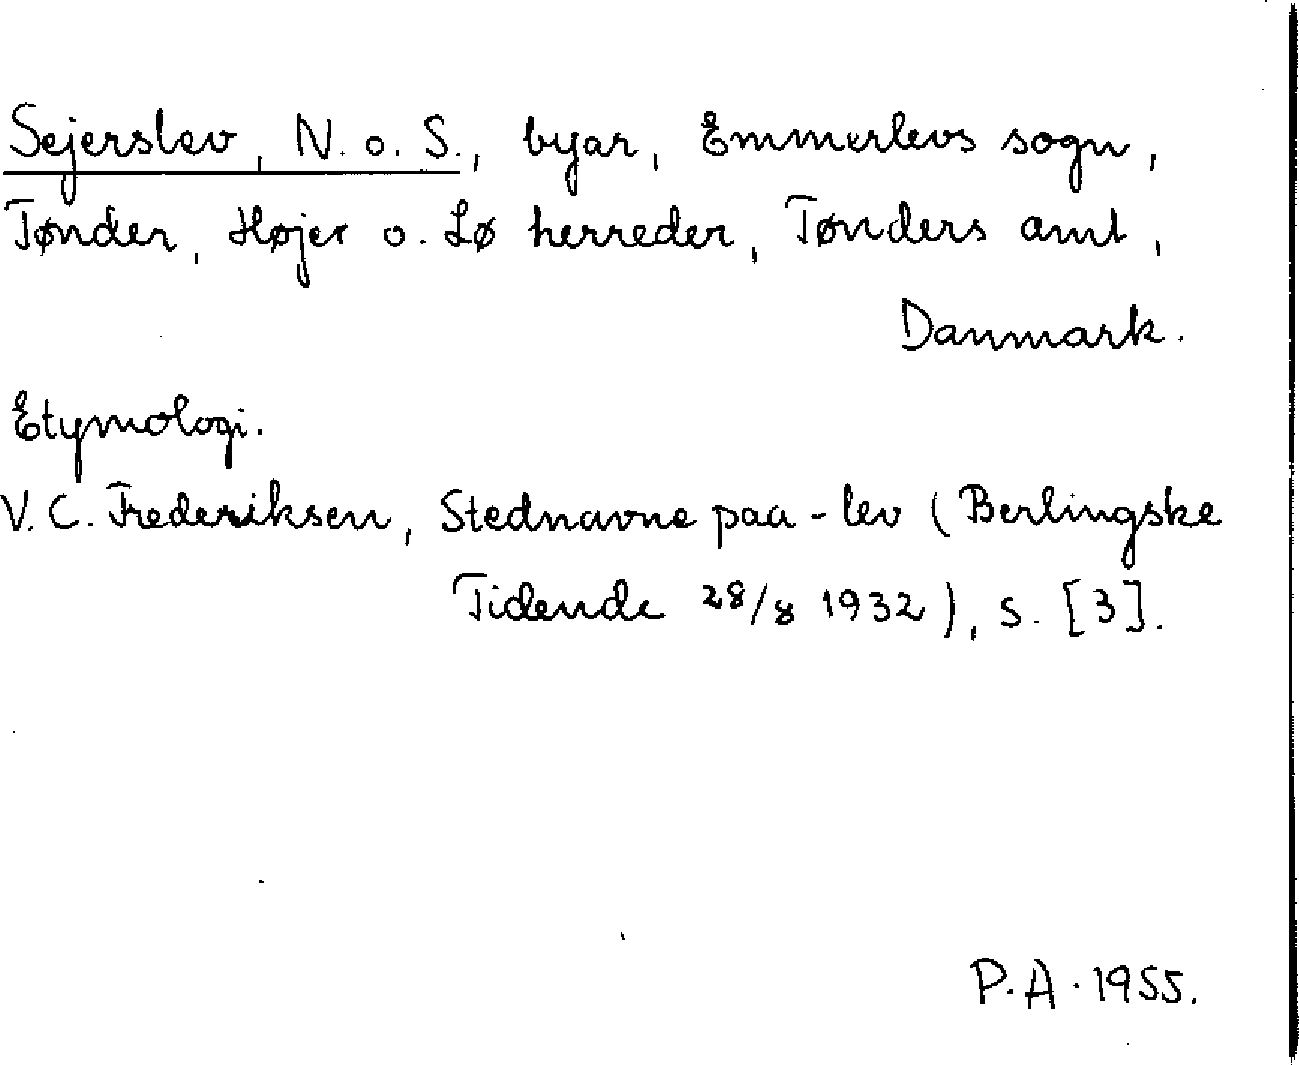 Sejerslev, N. o. S., byar, Emmerlevs sogn,
Tønder, Højer o. Lø herreder, Tønders amt,
Danmark.
Etymologi.
V. C. Frederiksen, Stednavne paa -lev (Berlingske
Tidende 28/8 1932), s. [3].
P. A. 1955.